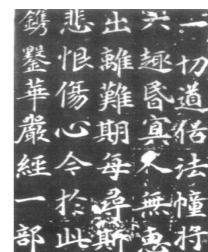 一切道俗法幢将
六趣昏冥久無惠
出離難期每尋斯
悲恨傷心今於此
鐫鑿華嚴經一部